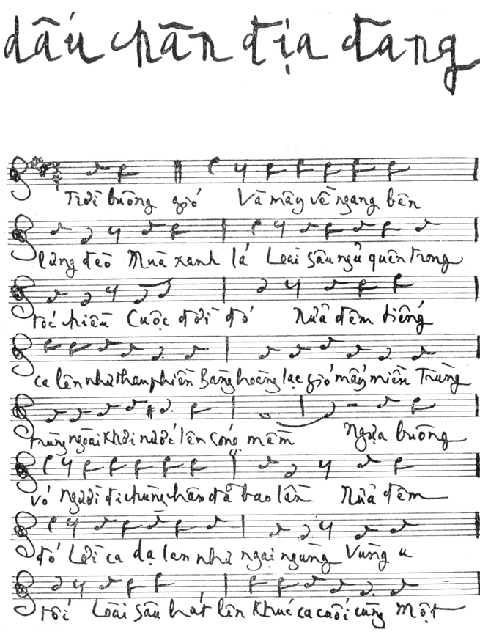 dấu chân địa đàng
Trời buông gió Và mây về ngang bên
lưng đèo Mùa xanh lá Loài sâu ngủ quên trong
tóc chiều Cuộc đời đó Nửa đêm tiếng
ca lên như than phiền Bàng hoàng lạc gió mấy miền Trùng
trùng ngoài khơi nước lên sóng mềm Ngựa buông
vó Người đi chùng chân đã bao lần Nửa đêm
đó Lời ca dạ lan như ngại ngùng Vùng u
tối Loài sâu hát lên khúc ca cuối cùng Một